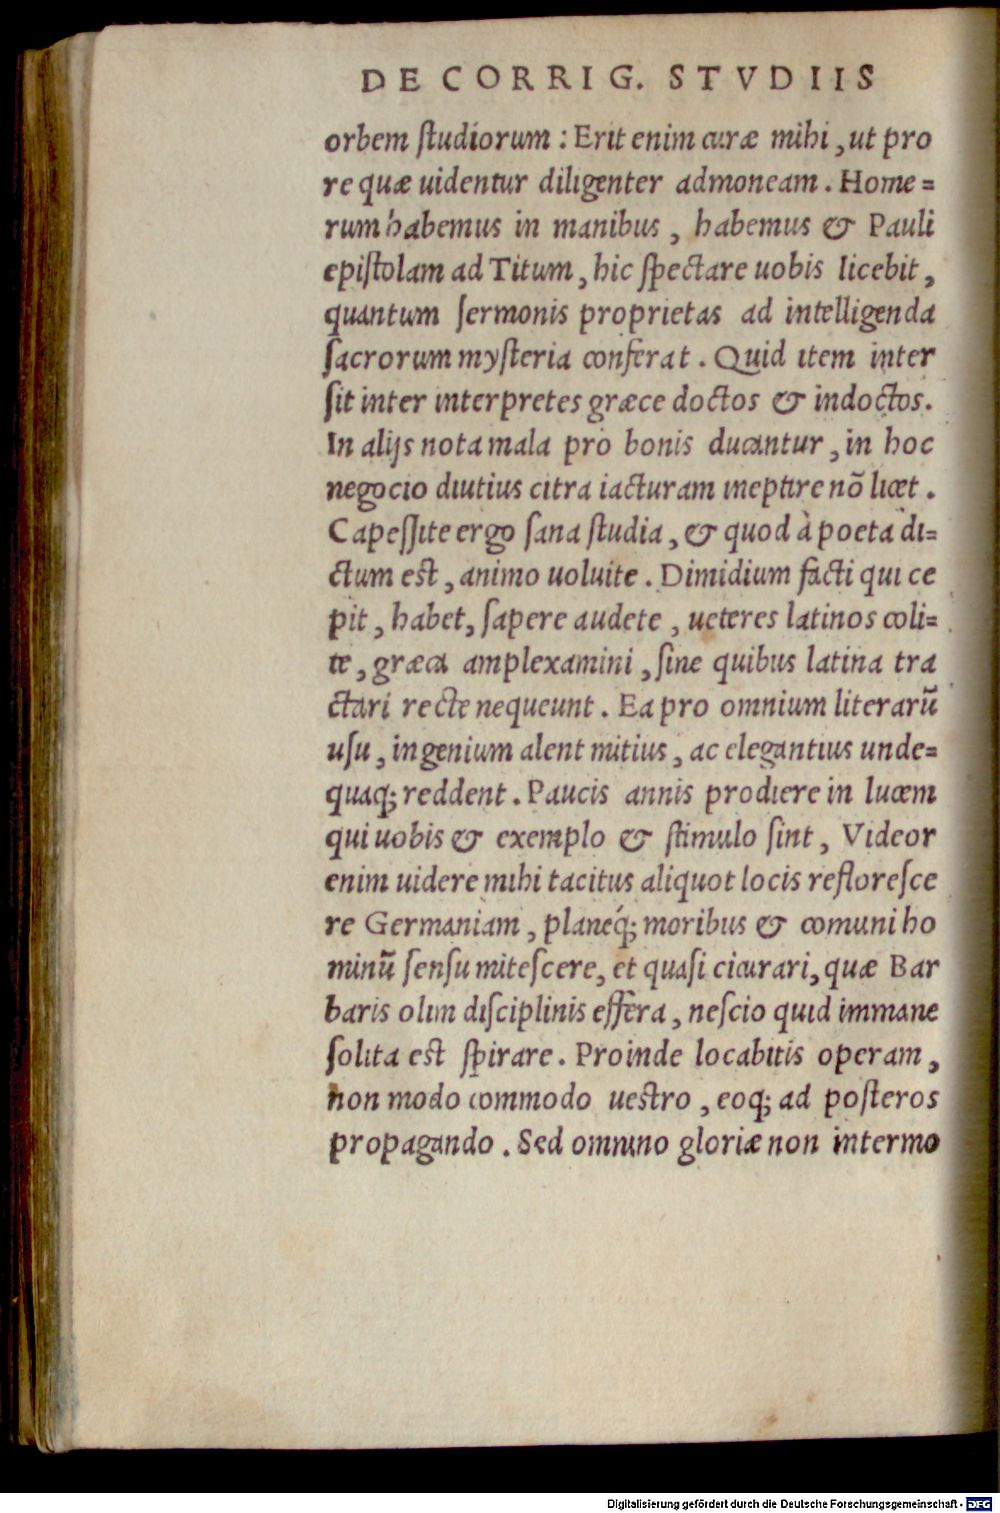 DE CORRIG. STVDIIS
orbem ſtudiorum : Erit enim curæ mihi, ut pro
re quæ uidentur diligenter admoneam. Home=
rum habemus in manibus, habemus & Pauli
epiſtolam ad Titum, hic ſpectare uobis licebit,
quantum ſermonis proprietas ad intelligenda
ſacrorum myſteria conferat. Quid item inter
ſit inter interpretes græce doctos & indoctos.
In alijs nota mala pro bonis ducantur, in hoc
negocio diutius citra iacturam ineptire nõ licet.
Capeſſite ergo ſana ſtudia, & quod à poeta di=
ctum est, animo uoluite. Dimidium facti qui ce
pit, habet, ſapere audete, ueteres latinos coli=
te, græca amplexamini, ſine quibus latina tra
ctari recte nequeunt. Ea pro omnium literarũ
uſu, ingenium alent mitius, ac elegantius unde=
quaq; reddent. Paucis annis prodiere in lucem
qui uobis & exemplo & ſtimulo ſint, Videor
enim uidere mihi tacitus aliquot locis refloreſce
re Germaniam, planeq́; moribus & comuni ho
minũ ſenſu miteſcere, et quaſi cicurari, quæ Bar
baris olim diſciplinis effera, neſcio quid immane
ſolita est ſpirare. Proinde locabitis operam,
non modo commodo uestro, eoq; ad poſteros
propagando. Sed omnino gloriæ non intermo
Digitalisierung gefördert durch die Deutsche Forschungsgemeinschaft - DFG